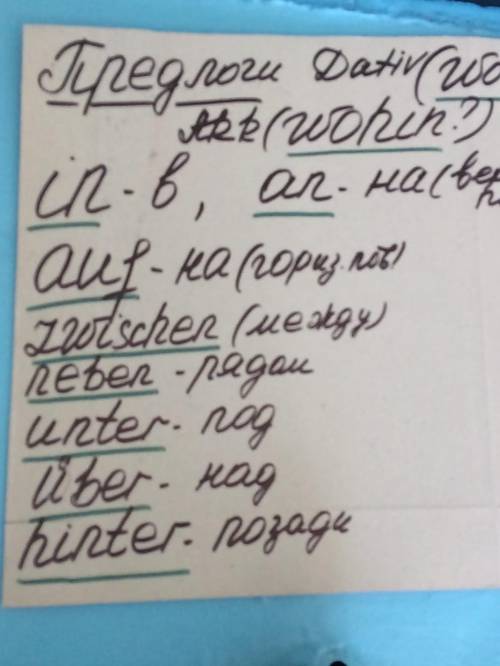 Предлоги Dativ (wo
Akk (wohin?)
in - в, an - на (вер
auf - на (гориз. пов)
zwischen (между)
neben - рядом
unter - под
über - над
hinter - позади